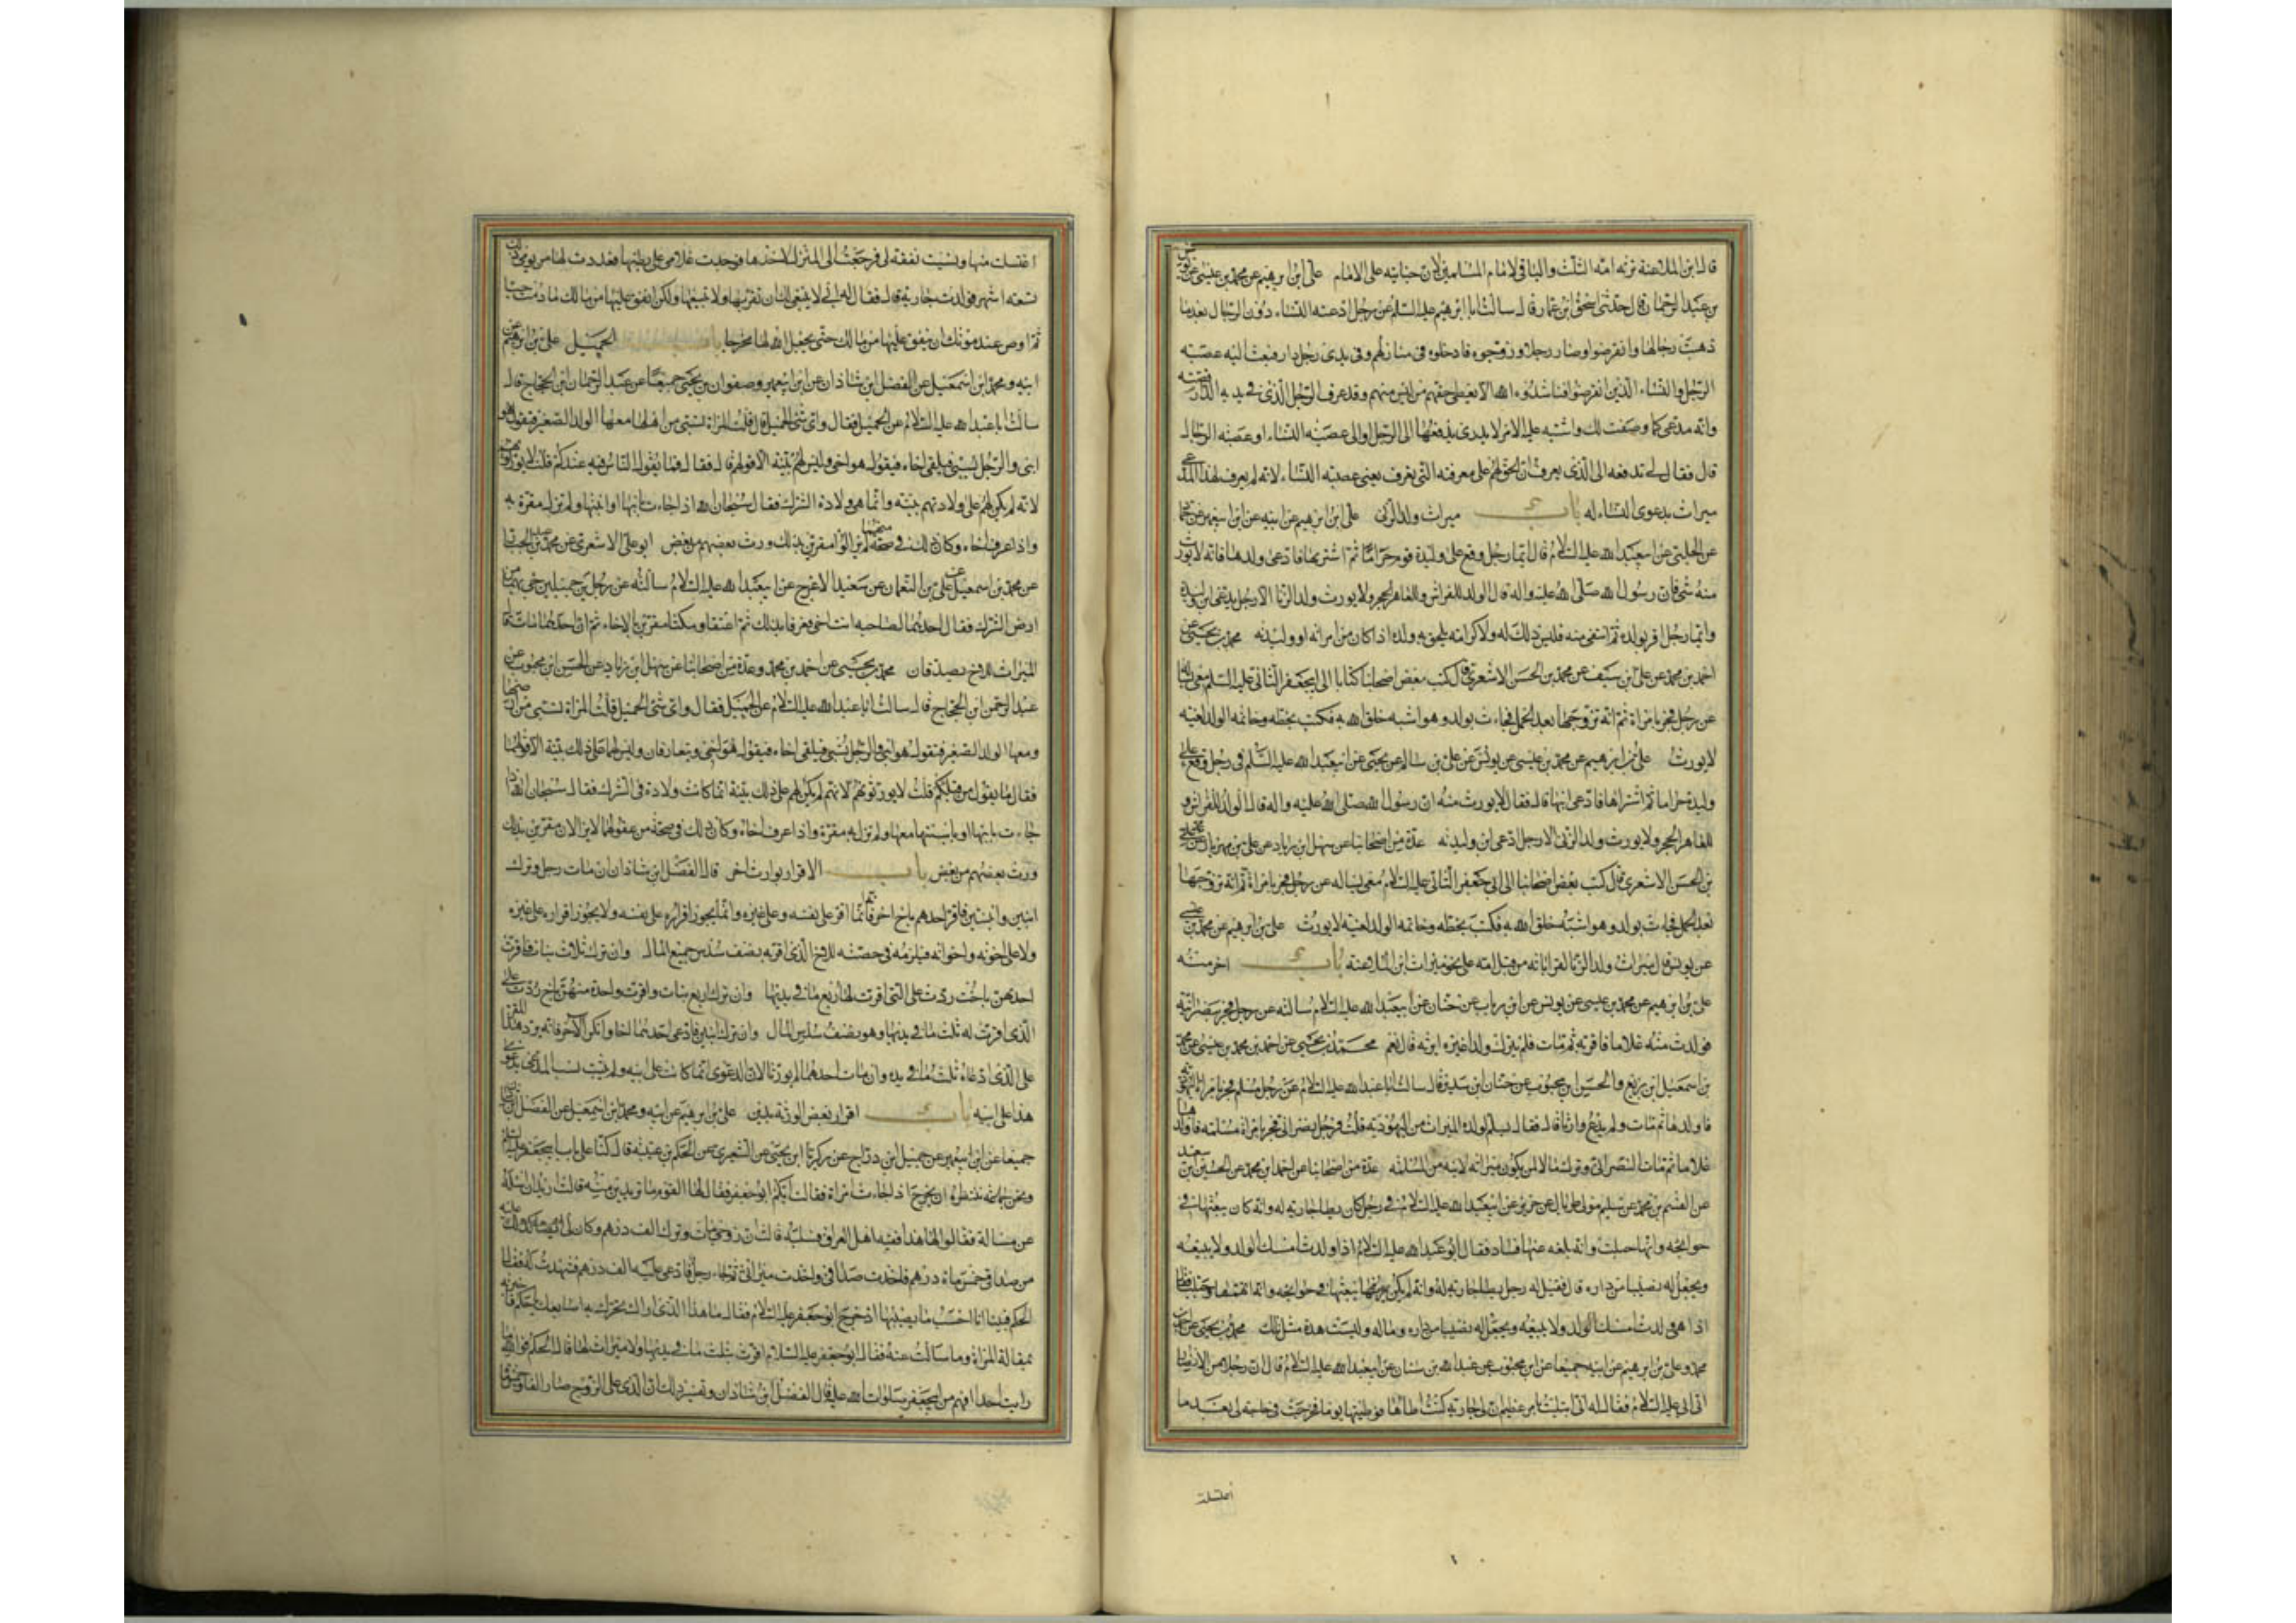 قال ابن الملاعنة ترثه امه الثلث والباقي لامام المسلمين لان جنايته على الامام علي ابن ابرهيم عن محمد بن عيسى عن يونس
بن عبد الرحمان قال حدثني اسحق ابن عمار قال سالت ابا ابرهيم عليه السلم عن رجل ادعته النساء دون الرجال بعد ما
ذهبت رجالها وانقرضوا وصار رجلا وزوجوه فادخلوه في منازلهم وفي يدى رجل دار فبعث اليه عصبة
الرجل والنساء الذين انقرضوا فناشدوه الله الا يعطى حقهم من ليس منهم وقد عرف الرجل الذى في يديه الدار قصته
وانه مدعى كما وصفت لك واشتبه عليه الامر لا يدرى يدفعها الى الرجل او الى عصبة النساء او عصبة الرجال
قال فقال لى تدفعه الى الذى يعرف ان الحق لهم على معرفته التي يعرف يعنى عصبة النساء لانه لم يعرف لهذا المدعى
ميراث بدعوى النساء له باب ميراث ولد الزنى علي ابن ابرهيم عن ابيه عن ابن ابيعمير عن حماد
عن الحلبي عن ابيعبد الله عليه السلام قال ايما رجل وقع على وليدة قوم حراما ثم اشتريها فادعى ولدها فانه لا يورث
منه شئ فان رسول الله صلى الله عليه واله قال الولد للفراش وللعاهر الحجر ولا يورث ولد الزنا الا رجل يدعى ابن وليدته
وايما رجل اقر بولده ثم انتفى منه فليس ذلك له ولا كرامة يلحق به ولده اذا كان من امراته او وليدته محمد بن يحيى عن
احمد بن محمد عن علي بن سيف عن محمد بن الحسن الاشعرى قال كتب بعض اصحابنا كتابا الى ابيجعفر الثاني عليه السلم معى يساله
عن رجل فجر بامراة ثم انه تزوجها بعد الحمل فجاءت بولد وهو اشبه خلق الله به فكتب بخطه وخاتمه الولد لغية
لا يورث علي بن ابرهيم عن محمد بن عيسى عن يونس عن علي بن سالم عن يحيى عن ابيعبد الله عليه السلم في رجل وقع على
وليدة حراما ثم اشتراها فادعى ابنها قال فقال لا يورث منه ان رسول الله صلى الله عليه واله قال الولد للفراش و
للعاهر الحجر ولا يورث ولد الزنى الا رجل ادعى ابن وليدته عدة من اصحابنا عن سهل ابن زياد عن علي بن مهزيار عن محمد
بن الحسن الاشعرى قال كتب بعض اصحابنا الى ابى جعفر الثاني عليه السلام معى يساله عن رجل فجر بامراة ثم انه تزوجها
بعد الحمل فجاءت بولد وهو اشبه خلق الله به فكتب بخطه وخاتمه الولد لغية لا يورث علي بن ابرهيم عن محمد بن عيسى
عن يونس قال ميراث ولد الزنا لقراباته من قبل امه على نحو ميراث ابن الملاعنة باب اخر منه
علي بن ابرهيم عن محمد بن عيسى عن يونس عن ابن رياب عن حنان عن ابيعبد الله عليه السلام سالته عن رجل فجر بنصرانية
فولدت منه غلاما فاقر به ثم مات فلم يترك ولدا غيره ايرثه قال نعم محمد بن يحيى عن احمد بن محمد بن عيسى عن محمد
بن اسمعيل ابن بزيع والحسن ابن محبوب عن حنان ابن سدير قال سالت ابا عبد الله عليه السلام عن رجل مسلم فجر بامراة يهودية
فاولدها ثم مات ولم يدع وارثا قال فقال يسلم لولده الميراث من اليهودية قلت فرجل نصراني فجر بامراة مسلمة فاولدها
غلاما ثم مات النصراني وترك مالا لمن يكون ميراثه قال لابنه من المسلمة عدة من اصحابنا عن احمد ابن محمد عن الحسين ابن سعيد
عن القسم بن محمد عن سليم مولى طربال عن حريز عن ابيعبد الله عليه السلام في رجل كان يطا جارية له وانه كان يبعثها في
حوائجه وانها حبلت وانه بلغه عنها فساد فقال ابو عبد الله عليه السلام اذا ولدت امسك الولد ولا يبيعه
ويجعل له نصيبا من داره قال فقيل له رجل يطا جارية له وانه لم يكن يبعثها في حوائجه وانه اتهمها وحبلت فقال
اذا هي ولدت امسك الولد ولا يبيعه ويجعل له نصيبا من داره وماله وليست هذه مثل تلك محمد بن يحيى عن احمد بن
محمد وعلي بن ابرهيم عن ابيه جميعا عن ابن محبوب عن عبد الله بن سنان عن ابيعبد الله عليه السلام قال ان رجلا من الانصار
اتى ابى عليه السلام فقال له انى ابتليت بامر عظيم ان لى جارية كنت اطاها فوطيتها يوما فخرجت في حاجة لى بعد ما
اغتسلت
اغتسلت منها ونسيت نفقة لى فرجعت الى المنزل لاخذها فوجدت غلامى على بطنها فعددت لها من يومى ذلك
تسعة اشهر فولدت جارية قال فقال له ابى لا ينبغى لك ان تقربها ولا تبيعها ولكن انفق عليها من مالك ما دمت حيا
ثم اوص عند موتك ان ينفق عليها من مالك حتى يجعل الله لها مخرجا باب الحميل علي بن ابرهيم عن
ابيه ومحمد ابن اسمعيل عن الفضل ابن شاذان عن ابن ابيعمير وصفوان بن يحيى جميعا عن عبد الرحمان ابن الحجاج قال
سالت ابا عبد الله عليه السلام عن الحميل فقال واى شئ الحميل قال قلت المراة تسبى من اهلها معها الولد الصغير فتقول هو
ابنى والرجل يسبى فيلقى اخاه فيقول هو اخى وليس لهم بينة الا قولهم قال فقال فما يقول الناس فيه عندكم قلت لا يورثونهم
لانه لم يكن لهم على ولادتهم بينة وانما هي ولادة الشرك فقال سبحان الله اذا جاءت بابنها او ابنتها ولم تزل مقرة به
واذا عرف اخاه وكان ذلك في صحة منهما لم يزالوا مقرين بذلك ورث بعضهم من بعض ابو علي الاشعرى عن محمد بن عبد الجبار
عن محمد بن اسمعيل عن علي بن النعمان عن سعيد الاعرج عن ابيعبد الله عليه السلام سالته عن رجلين حميلين جئ بهما من
ارض الشرك فقال احدهما لصاحبه انت اخى فعرفا بذلك ثم اعتقا ومكثا مقرين بالاخاء ثم ان احدهما مات فقال
الميراث للاخ يصدقان محمد بن يحيى عن احمد بن محمد وعدة من اصحابنا عن سهل ابن زياد عن الحسن ابن محبوب عن
عبد الرحمن ابن الحجاج قال سالت ابا عبد الله عليه السلام عن الحميل فقال واى شئ الحميل قلت المراة تسبى من ارضها
ومعها الولد الصغير فتقول هو ابنى والرجل يسبى فيلقى اخاه فيقول هو اخى ويتعارفان وليس لهما على ذلك بينة الا قولهما
فقال ما يقول من قبلكم قلت لا يورثونهم لانهم لم يكن لهم على ذلك بينة انما كانت ولادة في الشرك فقال سبحان الله اذا
جاءت بابنها او بابنتها معها ولم تزل به مقرة واذا عرف اخاه وكان ذلك في صحة من عقولهما لا يزالان مقرين بذلك
ورث بعضهم من بعض باب الاقرار بوارث اخر قال الفضل ابن شاذان ان مات رجل وترك
ابنين وابنتين فاقر احدهم باخ اخر فانما اقر على نفسه وعلى غيره وانما يجوز اقراره على نفسه ولا يجوز اقراره على غيره
ولا على اخوته واخواته فيلزمه في حصته للاخ الذى اقر به نصف سدس جميع المال وان ترك ثلاث بنات فاقرت
احديهن باخت ردت على التي اقرت لها ربع ما في يديها وان ترك اربع بنات واقرت واحدة منهن باخ ردت على
الذى اقرت له ثلث ما في يديها وهو نصف سدس المال وان ترك ابنين فادعى احدهما اخا وانكر الاخر فانه يرد هذا المقر
على الذى ادعاه ثلث ما في يده وان مات احدهما لم يورثا لان الدعوى انما كانت على ابيه ولم يثبت نسب المدعى بدعوى
هذا على ابيه باب اقرار بعض الورثة بدين علي بن ابرهيم عن ابيه ومحمد ابن اسمعيل عن الفضل ابن شاذان
جميعا عن ابن ابيعمير عن جميل ابن دراج عن زكريا ابن يحيى عن الشعيرى عن الحكم بن عتيبة قال كنا على باب ابيجعفر عليه السلام
ونحن جماعة ننتظره ان يخرج اذ جاءت امراة فقالت ايكم ابو جعفر فقال لها القوم ما تريدين منه قالت اريد ان اساله
عن مسالة فقالوا لها هذا فقيه اهل العراق فسليه فقالت ان زوجى مات وترك الف درهم وكان لى عليه
من صداقى خمس ماة درهم فاخذت صداقى واخذت ميراثى ثم جاء رجل فادعى عليه الف درهم فشهدت له فقال
الحكم فبينا انا احسب ما يصيبها اذ خرج ابو جعفر عليه السلام فقال ما هذا الذى اراك تحرك به اصابعك يا حكم فاخبرته
بمقالة المراة وما سالت عنه فقال ابو جعفر عليه السلام اقرت بثلث ما في يديها ولا ميراث لها قال الحكم فوالله ما
رايت احدا افهم من ابيجعفر صلوات الله عليه قال الفضل ابن شاذان وتفسير ذلك ان الذى على الزوج صار الفا وخمسمائة